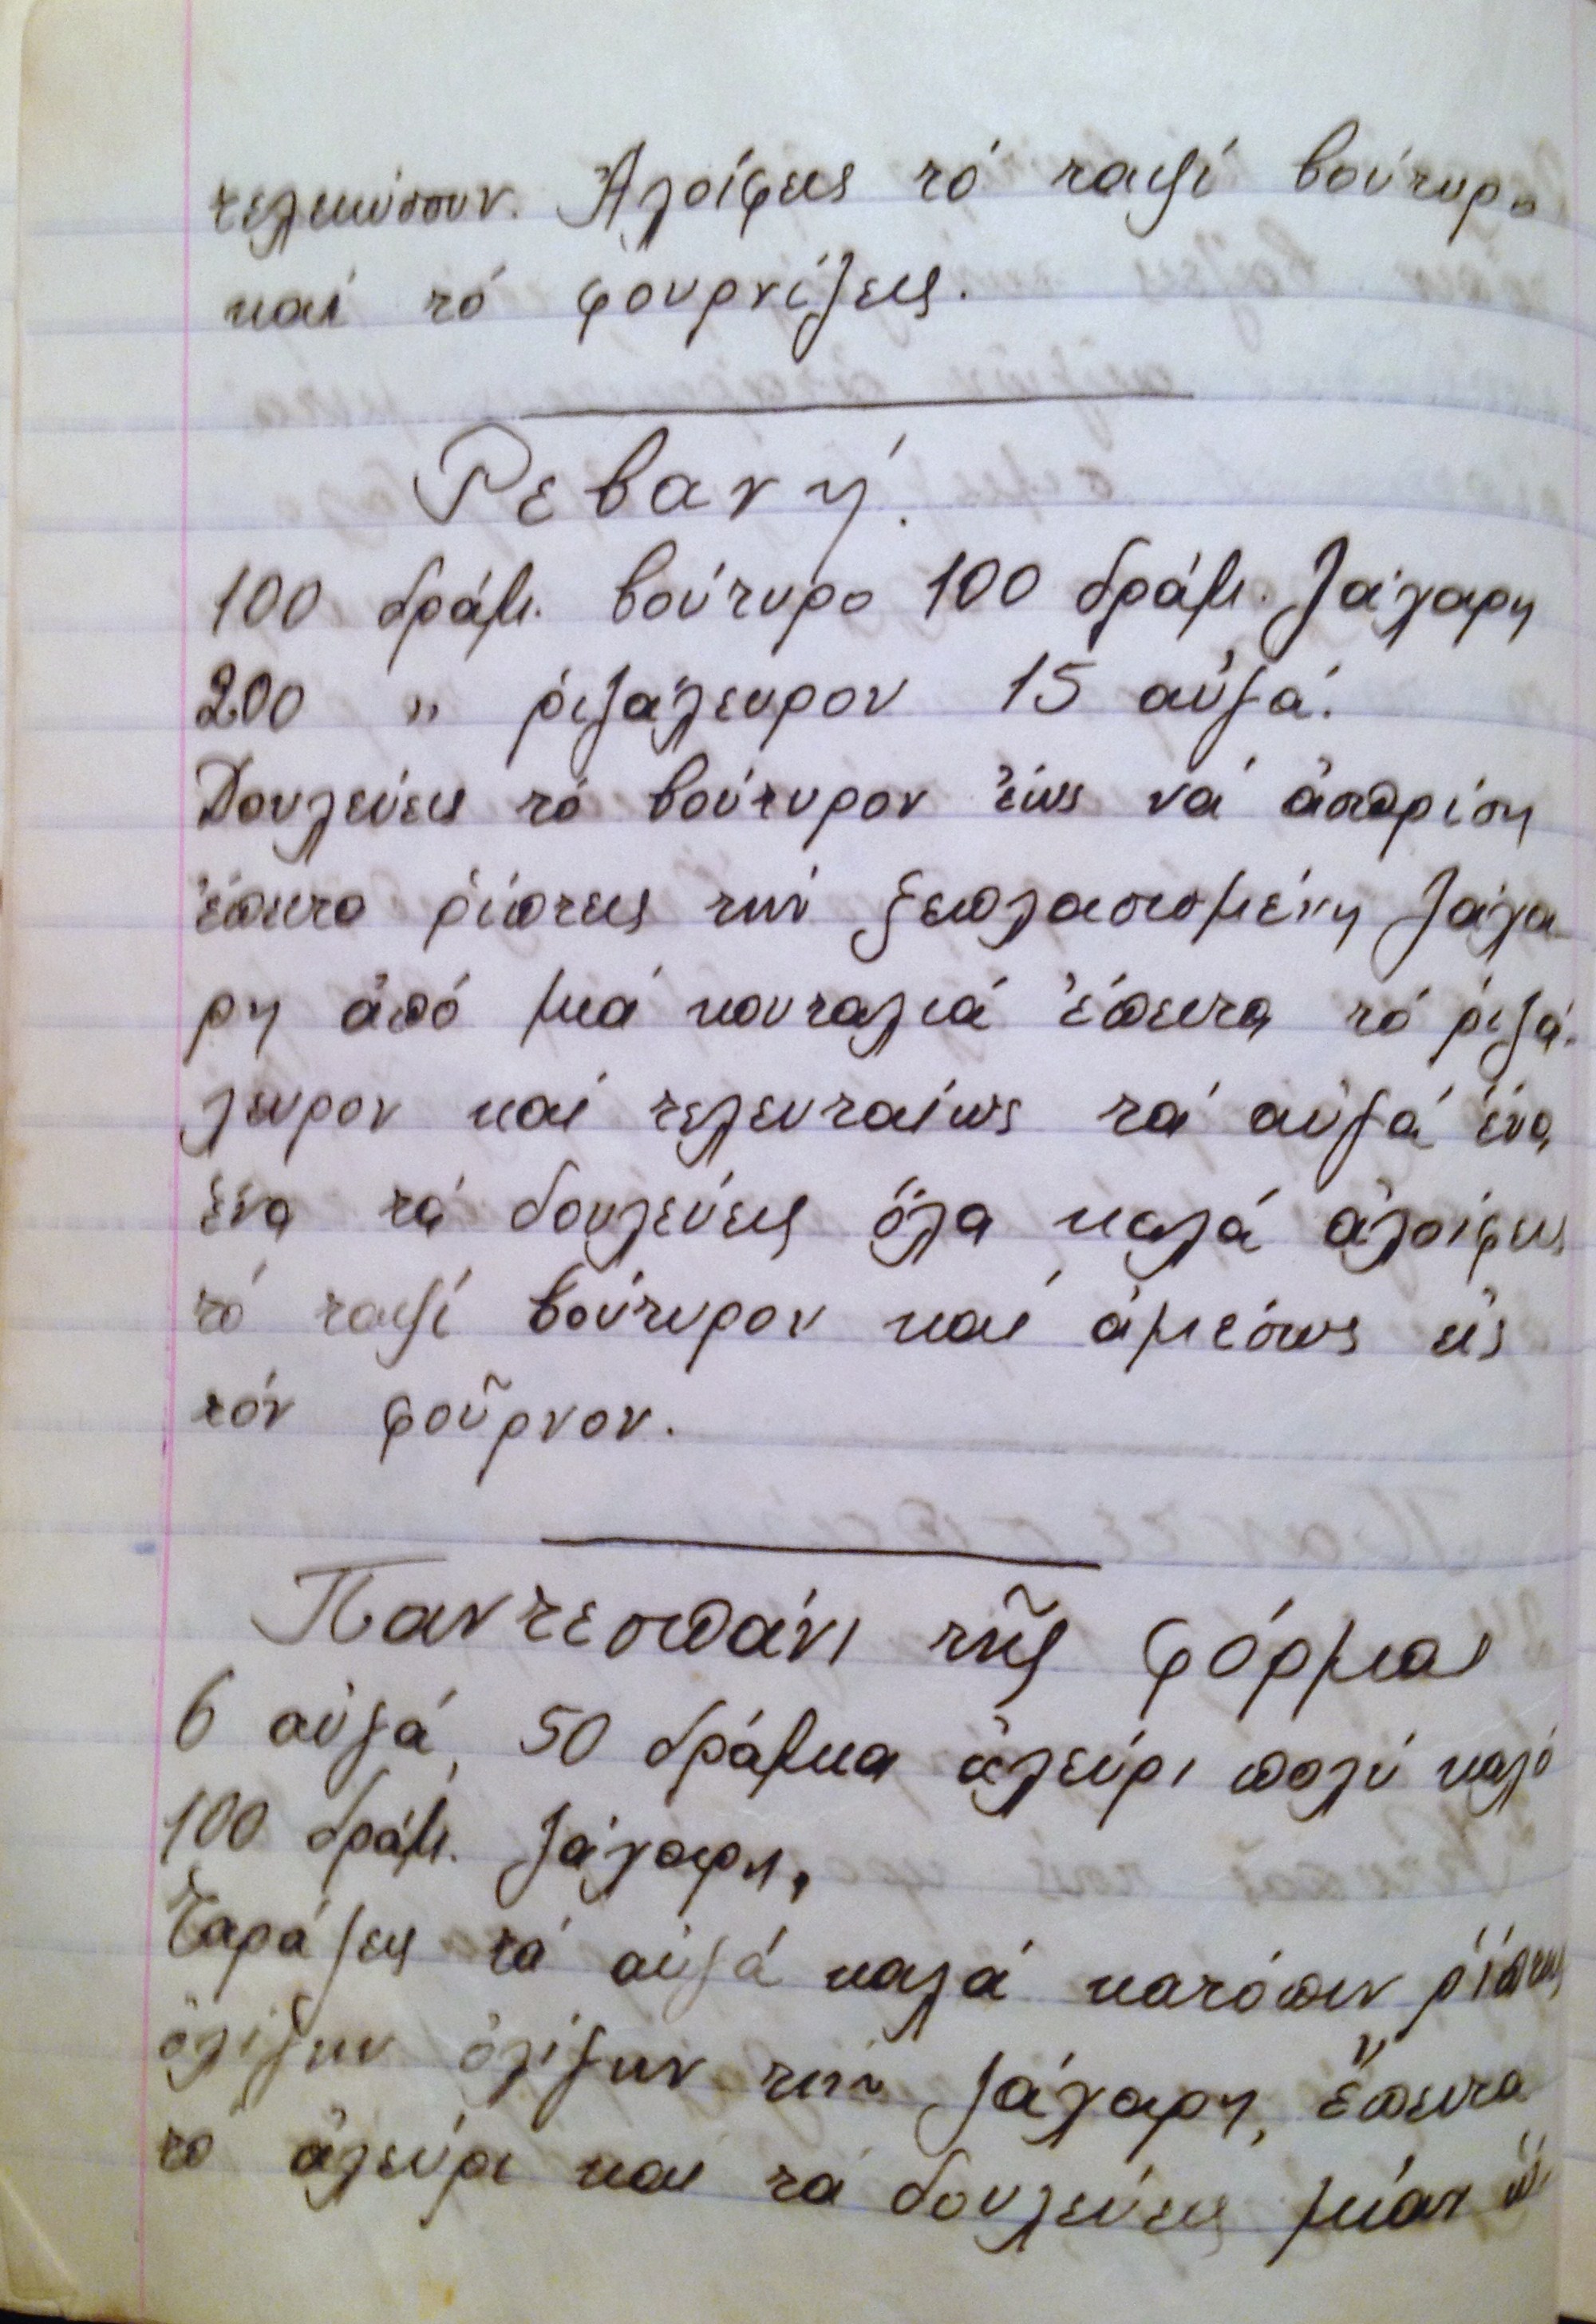 τελειώσουν. Ἀλοίφεις τό ταψί βούτυρο
καί τό φουρνίζεις.
Ρεβανή.
100 δράμ. βούτυρο 100 δράμ. ζάχαρη
200 " ριζάλευρον 15 αὐγά.
Δουλεύεις τό βούτυρον ἕως νά ἀσπρίση
ἔπειτα ρίπτεις τήν ξεπλασισμένη ζάχα
ρη ἀπό μιά κουταλιά ἔπειτα τό ριζά-
λευρον καί τελευταίως τά αὐγά ἕνα
ἕνα τά δουλεύεις ὅλα καλά ἀλοίφεις
τό ταψί βούτυρον καί ἀμέσως εἰς
τόν φοῦρνον.
Παντεσπάνι τῆς φόρμας
6 αὐγά, 50 δράμια ἀλεύρι πολύ καλό
100 δράμ. ζάχαρη.
Ταράζεις τά αὐγά καλά κατόπιν ρίπτεις
ὀλίγων ὀλίγων τήν ζάχαρη, ἔπειτα
το ἀλεύρι και τά δουλεύεις μίαν ὥ